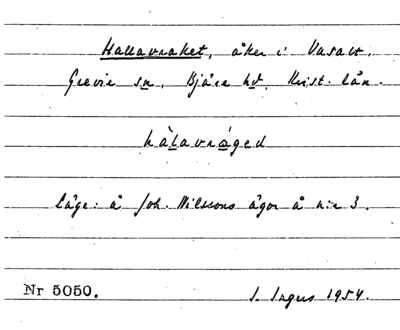 Hallavraket, åker i Vasalt.
Grevie sn, Bjäre hd, Krist. län.
hàlavráged
Läge: å Joh. Nilssons ägor å n:r 3.
Nr 5050. S. Ingers 1954.